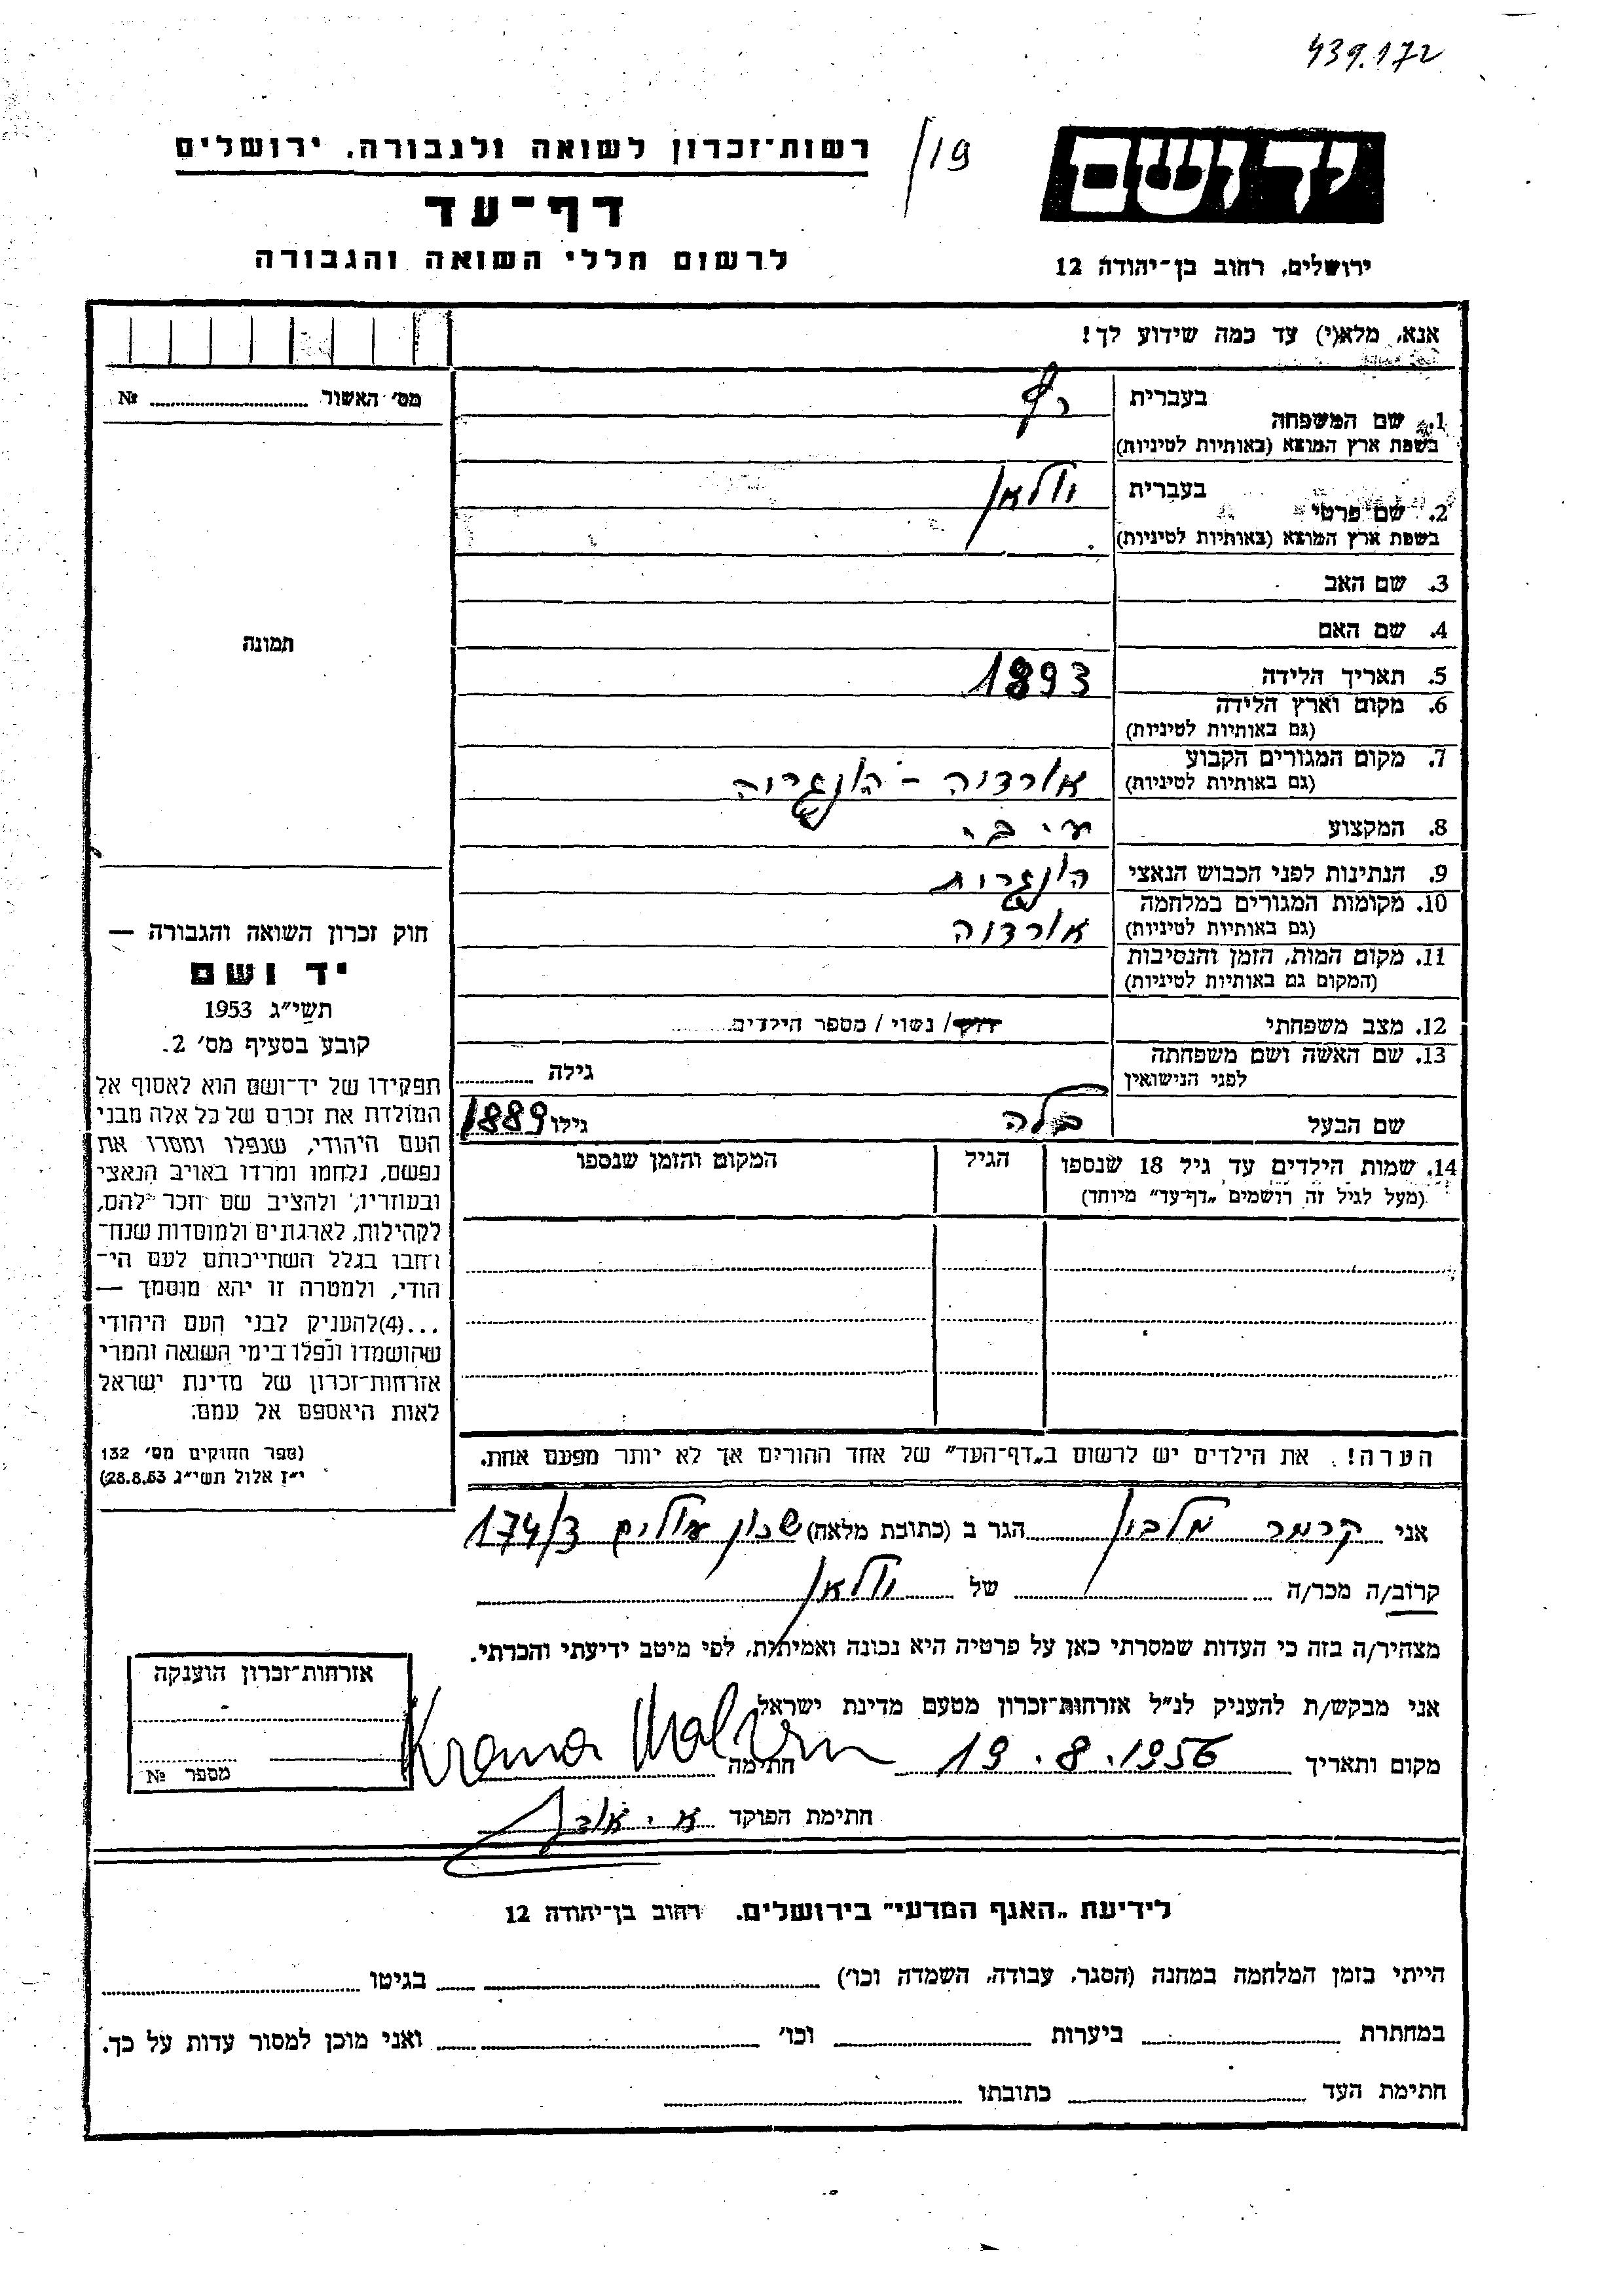 439.172
יד ושם
/19
רשות־זכרון לשואה ולגבורה, ירושלים
דף־עד
לרשום חללי השואה והגבורה
ירושלים, רחוב בן־יהודה 12
אנא, מלא(י) עד כמה שידוע לך!
מס׳ האשור № 
בעברית
1. שם המשפחה
בשפת ארץ המוצא (באותיות לטיניות)
בעברית
2. שם פרטי
בשפת ארץ המוצא (באותיות לטיניות)
3. שם האב
4. שם האם
תמונה
5. תאריך הלידה 1893
6. מקום וארץ הלידה
(גם באותיות לטיניות)
7. מקום המגורים הקבוע
(גם באותיות לטיניות) אורדוה - הונגריה
8. המקצוע ע.ב.י
9. הנתינות לפני הכבוש הנאצי הונגרית
10. מקומות המגורים במלחמה
(גם באותיות לטיניות) אורדוה
11. מקום המות, הזמן והנסיבות
(המקום גם באותיות לטיניות)
12. מצב משפחתי רווק/ נשוי / מספר הילדים
13. שם האשה ושם משפחתה
לפני הנישואין
גילה
שם הבעל בלה גילו 1889
14. שמות הילדים עד גיל 18 שנספו הגיל המקום והזמן שנספו
(מעל לגיל זה רושמים „דף־עד" מיוחד)
חוק זכרון השואה והגבורה —
יד ושם
תשי״ג 1953
קובע בסעיף מס׳ 2.
תפקידו של יד־ושם הוא לאסוף אל
המולדת את זכרם של כל אלה מבני
העם היהודי, שנפלו ומסרו את
נפשם, נלחמו ומרדו באויב הנאצי
ובעוזריו, ולהציב שם וזכר להם,
לקהילות, לארגונים ולמוסדות שנח־
רחבו בגלל השתייכותם לעם הי־
הודי, ולמטרה זו יהא מוסמך —
...(4)להעניק לבני העם היהודי
שהושמדו ונפלו בימי השואה והמרי
אזרחות־זכרון של מדינת ישראל
לאות היאספם אל עמם.
(ספר החוקים מס׳ 132
י״ז אלול תשי״ג 28.8.53)
הערה! את הילדים יש לרשום ב„דף־העד" של אחד ההורים אך לא יותר מפעם אחת.
אני קרמר מלבון הגר ב (כתובת מלאה) שכון עולים 174/3
קרוב/ה מכר/ה של
מצהיר/ה בזה כי העדות שמסרתי כאן על פרטיה היא נכונה ואמיתית, לפי מיטב ידיעתי והכרתי.
אני מבקש/ת להעניק לנ״ל אזרחות־זכרון מטעם מדינת ישראל
מקום ותאריך 19.8.1956 חתימה
חתימת הפוקד
אזרחות־זכרון הוענקה
מספר №
לידיעת „האגף המדעי" בירושלים. רחוב בן־יהודה 12
הייתי בזמן המלחמה במחנה (הסגר, עבודה, השמדה וכו׳) בגיטו
במחתרת ביערות וכו׳ ואני מוכן למסור עדות על כך.
חתימת העד כתובתו